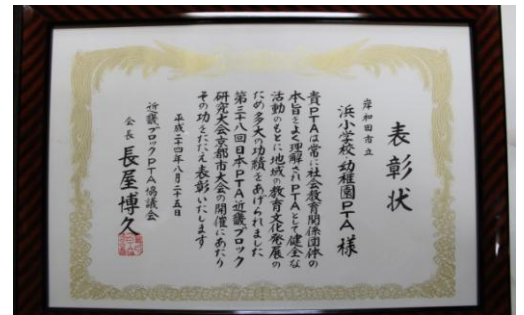 表彰状
岸和田市立
浜小学校・幼稚園PTA様
貴PTAは常に社会教育関係団体の
本旨をよく理解されPTAとして健全な
活動のもとに地域の教育文化発展の
ため多大の功績をあげられました
第三十八回日本PTA近畿ブロック
研究大会京都市大会の開催にあたり
その功をたたえ表彰いたします
平成二十四年八月二十五日
近畿ブロックPTA協議会
会長 長屋博久